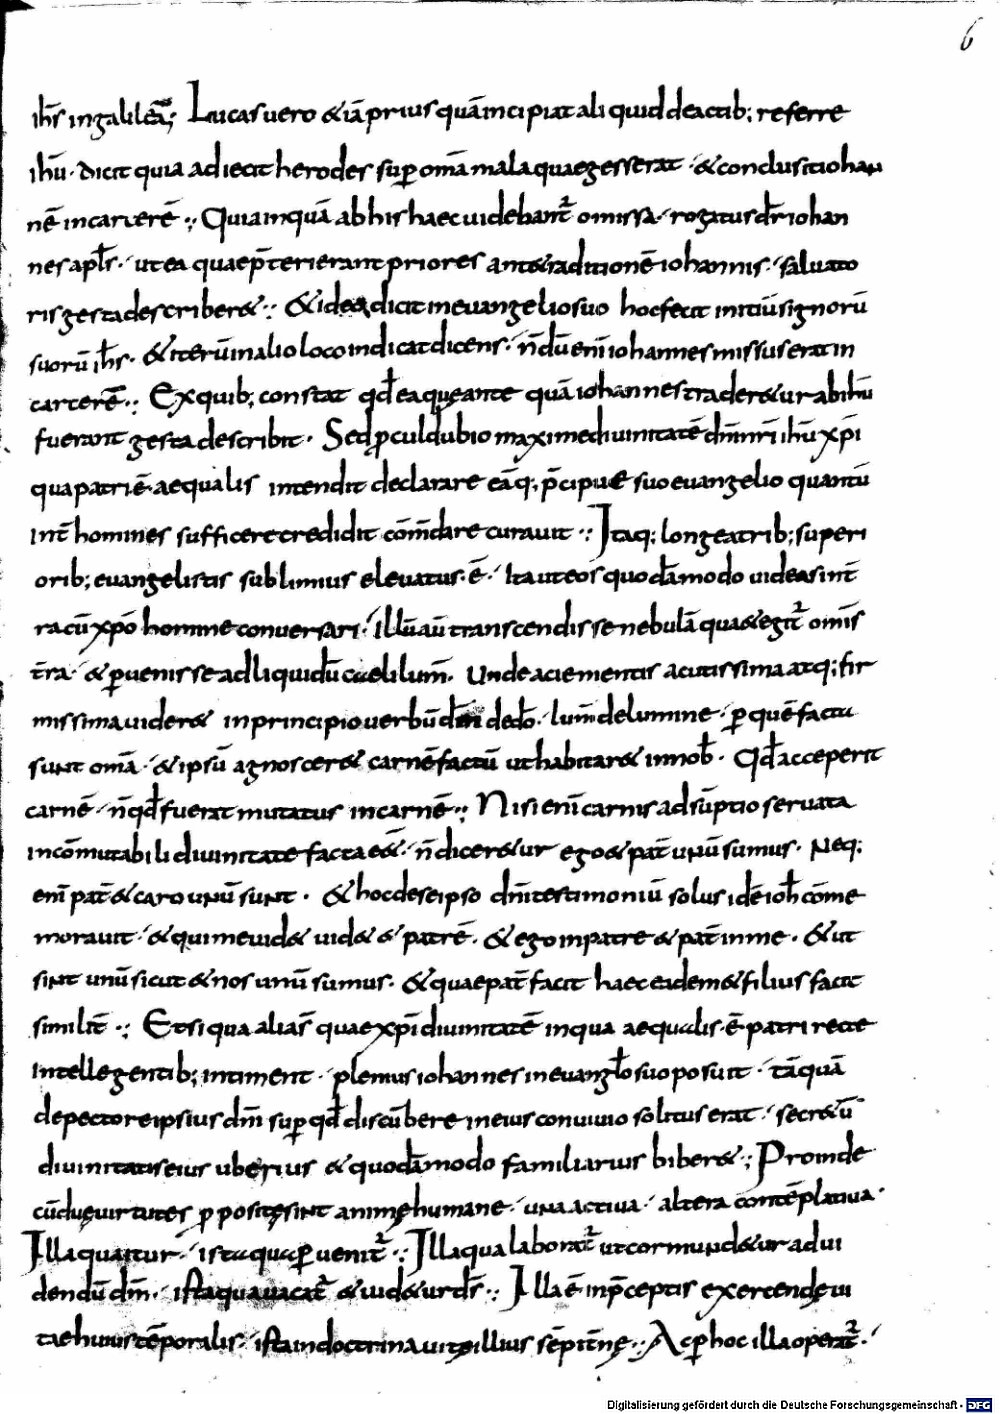 6
ih̄s ingalilea̅; Lucas vero & ia̅ prius qua̅ incipiat aliquid de actib; referre
ihū· dicit quia adiecit herodes sup̱ om̄a mala quae gesserat· & conclusit iohan
nē in carcerē·; Quia inqua̅ ab his haec videbant̄ omissa· rogatus dr̄ iohan
nes apls̄· ut ea quae p̄terierant priores ante traditionē iohannis· salvato
ris gesta describer&·; & ideo dicit in evangelio suo hoc fecit initiū signorū
suorū ih̄s· & iterū in alio loco indicat dicens· n̄dū enī iohannes missus erat in
carcerē·; Ex quib; constat qđ ea quę ante quā iohannes trader&ur ab ihū
fuerant gesta describit· Sed p̱culdubio maxime divinitatē dn̄i nr̄i ihū xp̄i
qua patri ē aequalis intendit declarare eāq; p̄cipue suo evangelio quantū
int̄ homines sufficere credidit com̄dare curavit·; Itaq; longe a trib; superi
orib; evangelistis sublimius elevatus ē· Ita ut eos quodāmodo videas in t̄
ra cū xp̄o homine conversari· Illū aū transcendisse nebulā qua tegit̄ om̄is
t̄ra· & p̱venisse ad liquidū caeli lum̄· Unde acie mentis acutissima atq; fir
missima vider& in principio verbū dm̄ de dō· lum̄ de lumine· p̱ quē facta
sunt om̄a· & ipsū agnoscer& carnē factū ut habitar& in nob̄· Qđ acceperit
carnē· n̄ qđ fuerat mutatus in carnē·; Nisi enī carnis adsūptio servata
incōmutabili divinitate facta e&̄· n̄ dicer&ur ego & pat̄ unū sumus· Neq;
enī pat̄ & caro unū sunt· & hoc de se ipso dn̄i testimoniū solus idē ioh̄ cōme
moravit· & qui me vid& vid& & patrē· & ego in patre & pat̄ in me· & ut
sint unū sicut & nos unū sumus· & quae pat̄ facit haec eadem & filius facit
similit̄·; Et si qua alia s̄ quae xp̄i divinitatē in qua aequalis ē patri recte
intellegentib; intiment· plenius iohannes in evangl̄o suo posuit· tāquā
de pectore ipsius dn̄i sup̱ qđ discūbere in eius convivio solitus erat· secr&ū
divinitatis eius uberius & quodāmodo familiarius biber&·; Proinde
cū duę virtutes p̱positę sint animę humanę· una activa· altera contēplativa·
Illa qua itur· ista qua p̱venit̄·; Illa qua laborat̄ ut cor mund&ur ad vi
dendū dm̄· ista qua vacat̄ & vid&ur ds̄·; Illa ē in p̄ceptis exercendę vi
tae huius tēporalis· ista in doctrina vitę illius sēpit̄nę·; Ac p̱ hoc illa operat̄·
Digitalisierung gefördert durch die Deutsche Forschungsgemeinschaft - DFG